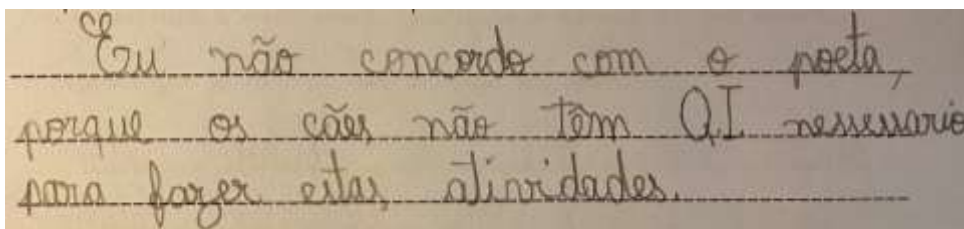 Eu não concordo com o poeta,
porque os cães não têm QI nessessario
para fazer estas atividades.